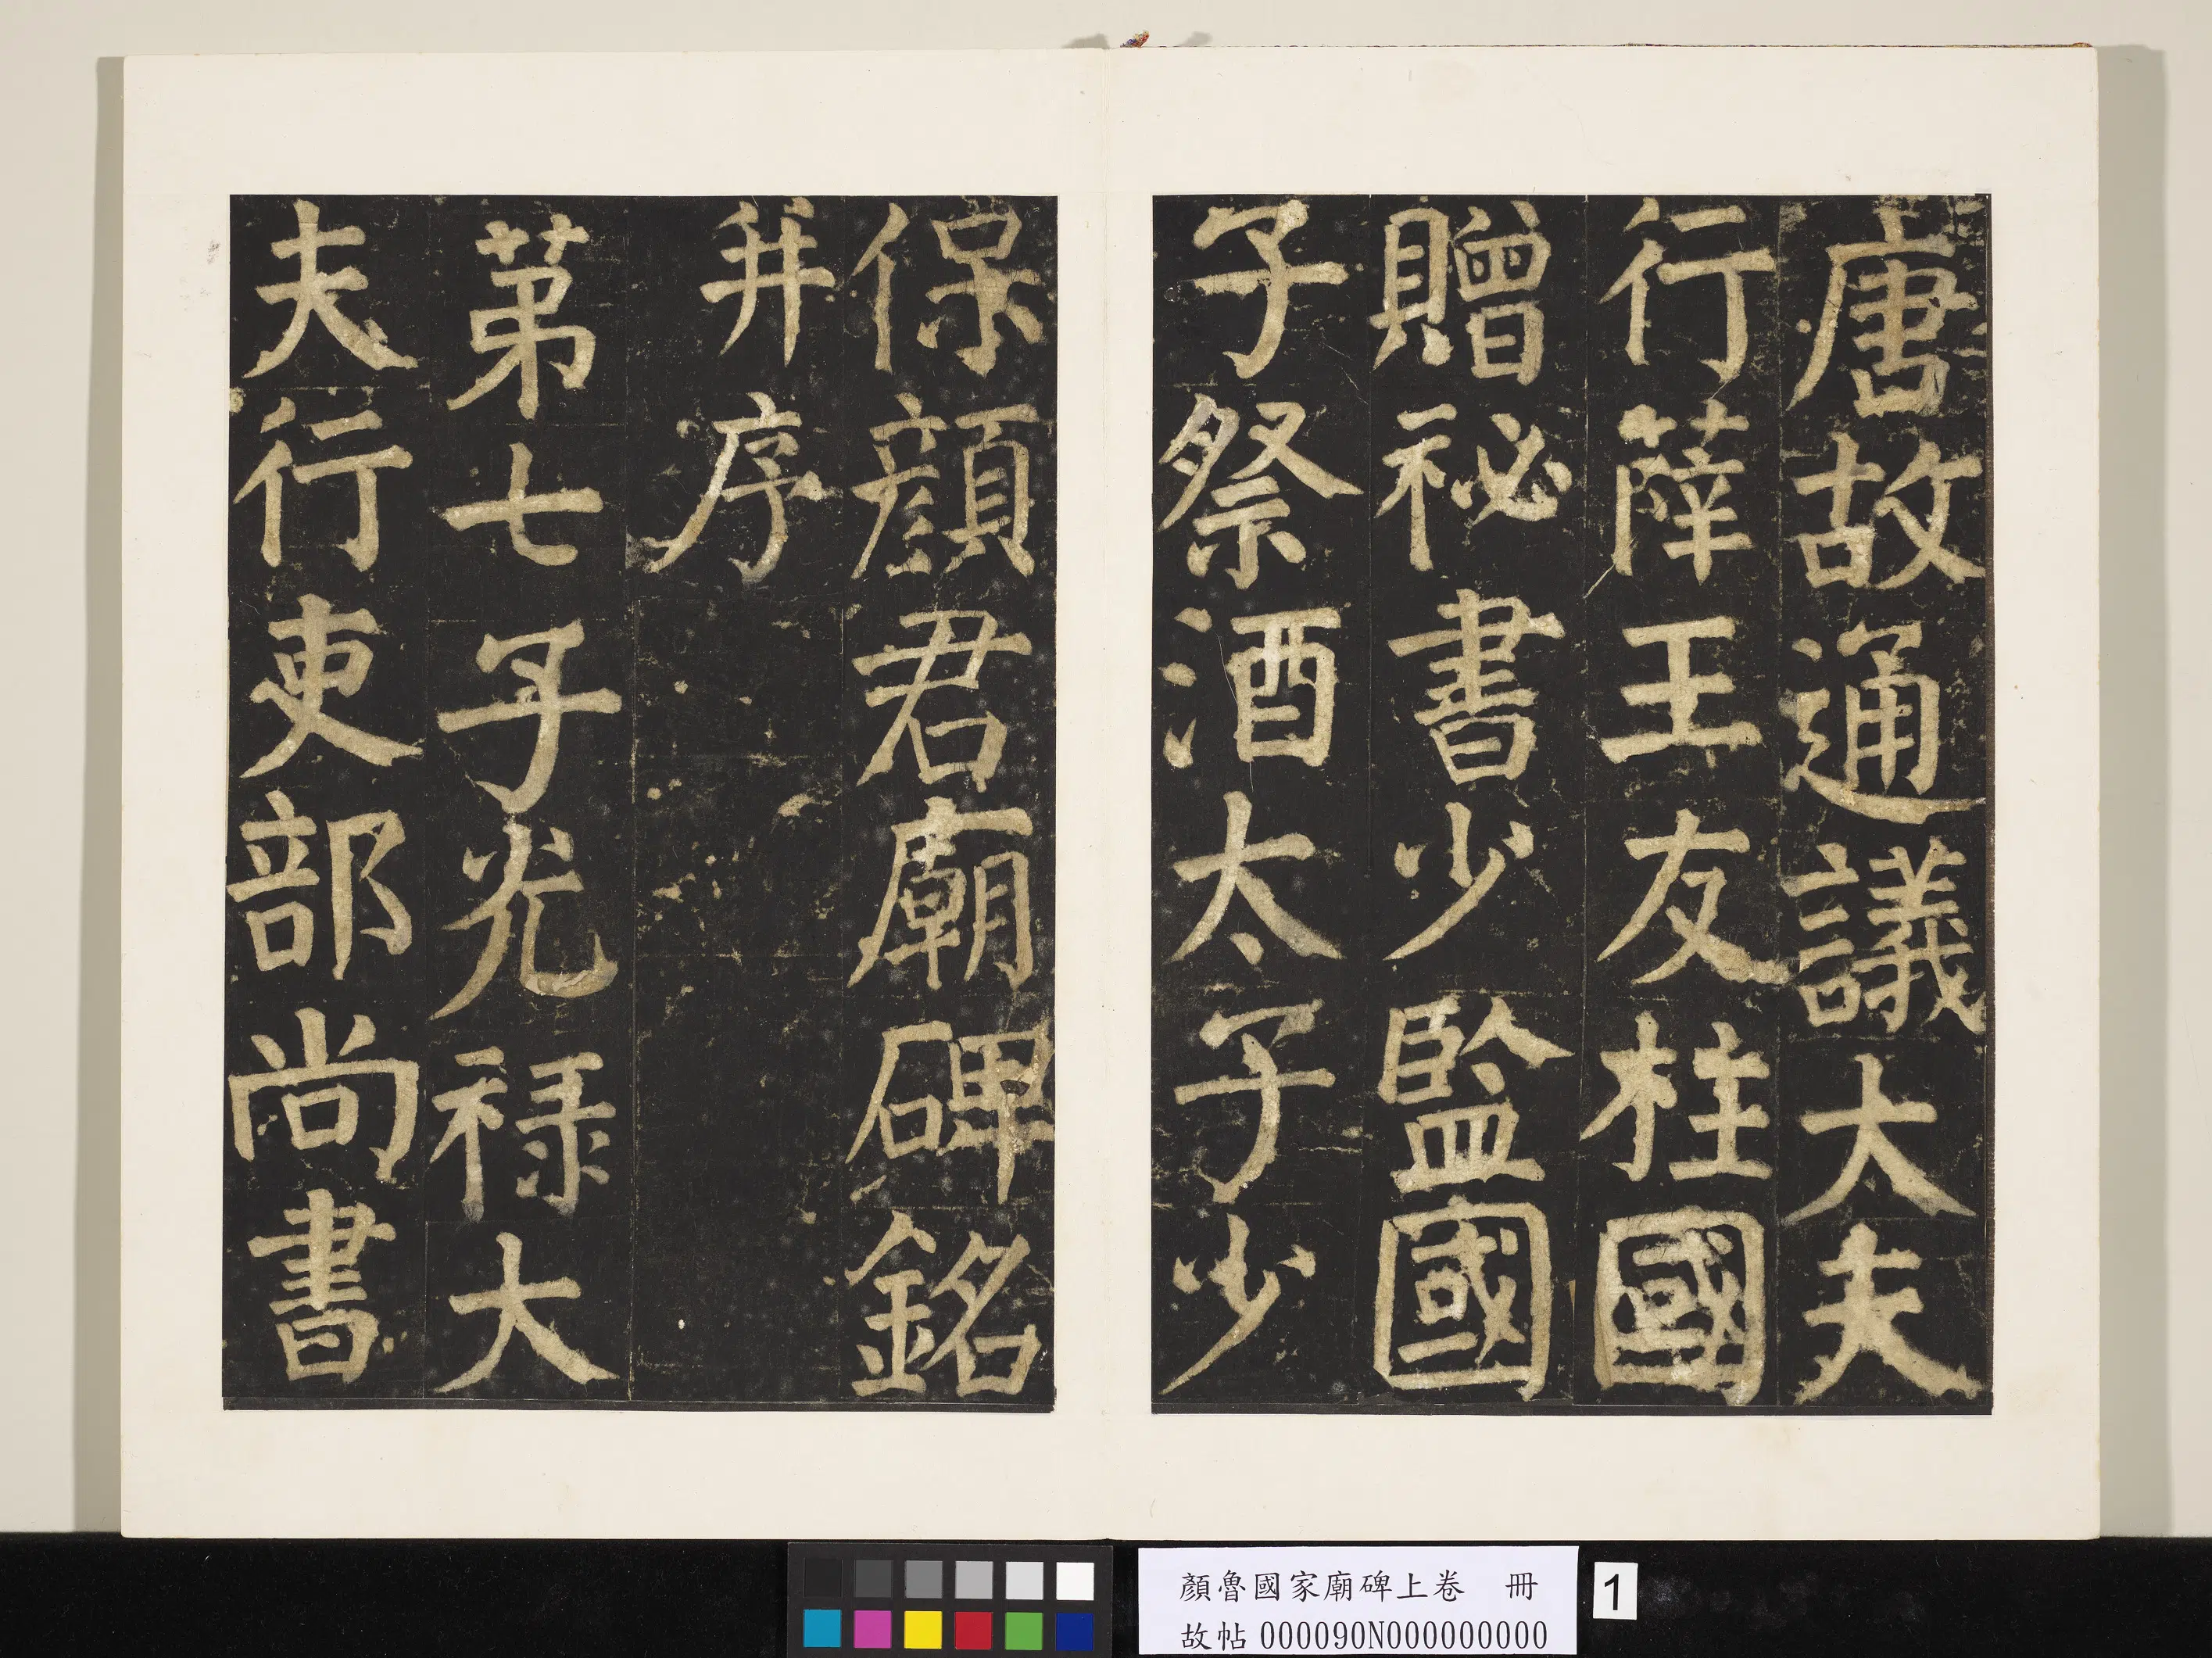 唐故通議大夫
行薛王友柱國
贈祕書少監國
子祭酒太子少
保顏君廟碑銘
并序
第七子光祿大
夫行吏部尚書
顏魯國家廟碑上卷 冊
故帖000090N000000000
1